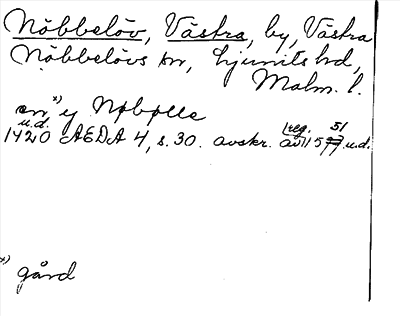 Nöbbelöv, Västra, by, Västra
Nöbbelövs sn, Ljunits hd,
Malm. l.
en x) y Nøbølle
u.d. reg. 51
1420 AEDA 4, s. 30. avskr. av 1577 u.d.
x) gård